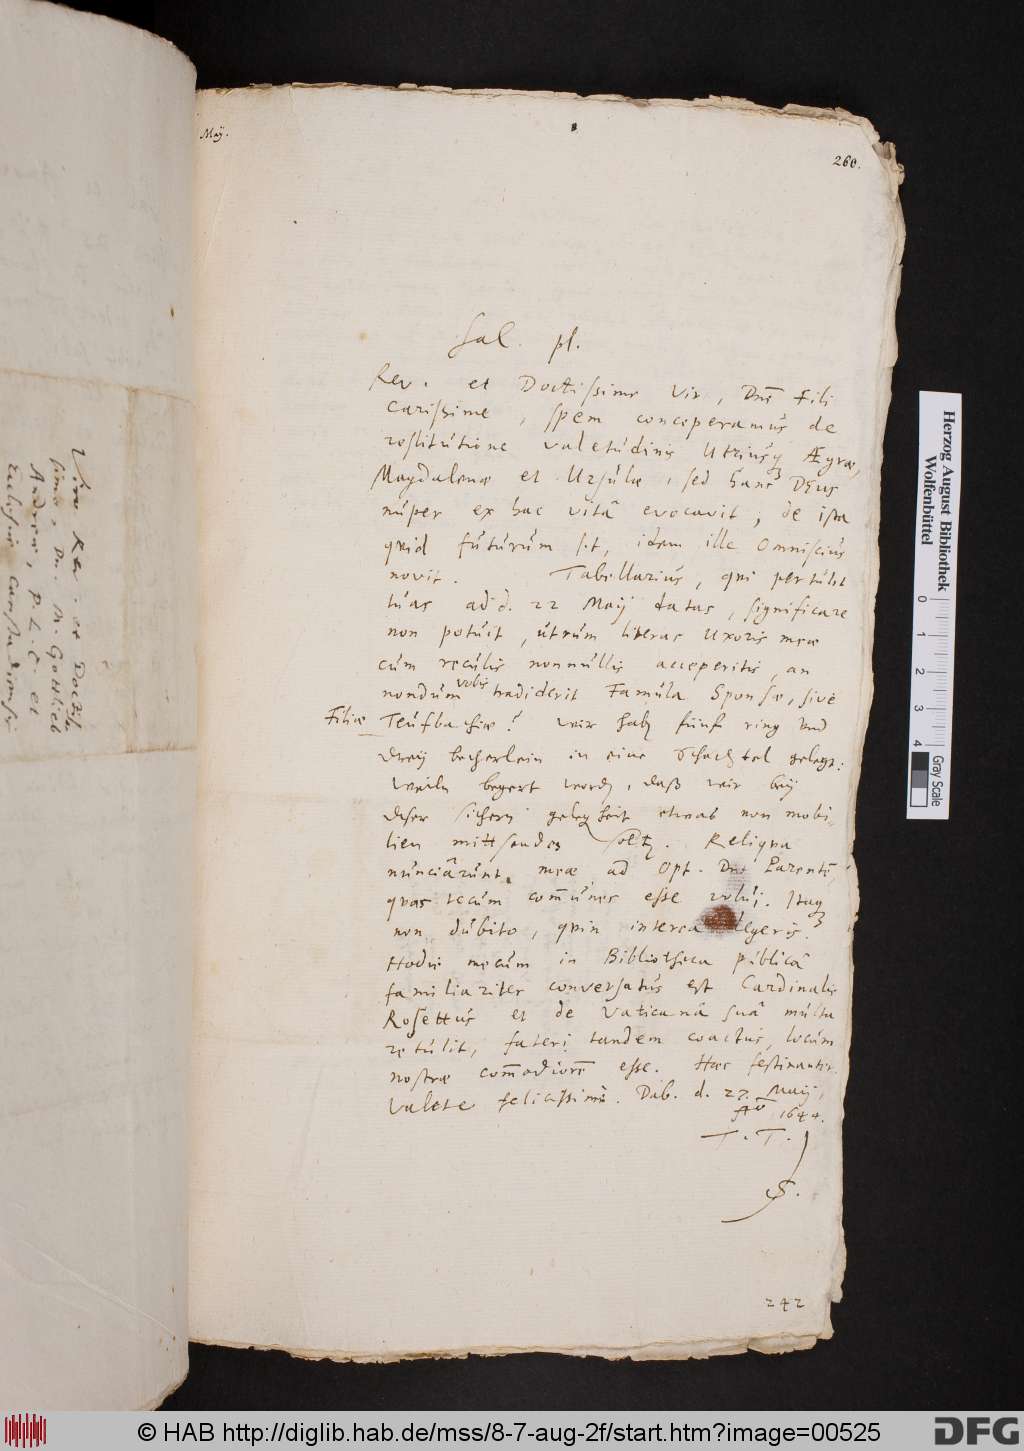 Maÿ.
260.
Sal. pl.
Rev. et Doctissime Vir, Dne Fili
carissime, spem conceperamus de
restitutione valetudinis utriusq Ægræ,
Magdalenæ et Ursulæ, sed hanc Deus
nuper ex hac vitâ evocavit, de ista
quid futurum sit, idem ille Omniscius
novit. Tabellarius, qui pertulit
tuas ad d. 22 Maij datas, significare
non potuit, utrum literas Uxoris meæ
cum reculis nonnullis acceperitis, an
nondum vobis tradiderit Famula Sponsæ, sive
Filiæ Teufbachiæ? Wir hab fünf ring und
dreÿ becherlein in eine Schachtel gelegt:
Weiln begert word, daß wir beÿ
diser sichern gelegheit etwas von mobi-
lien mittsenden solt. Reliqua
nunciârunt meæ ad Opt. Dn Parentē,
quas tecum communes esse volui. Itaq
non dubito, quin interea legeris.
Hodie mecum in Bibliotheca publicâ
familiariter conversatus est Cardinalis
Rosettus et de Vaticanâ suâ multa
retulit, fateri tandem coactus, locum
nostræ commodiorē esse. Hæc festinanter.
Valete felicissimè. Dab. d. 27. Maij,
Aō 1644.
T. T.
S.
242
Viro Rev. et Doctis-
simo, Dn. M. Gottlieb
Andreæ, P. L. C. et
Ecclesiæ
Herzog August Bibliothek
Wolfenbüttel
0 1 2 3 4
Gray Scale
© HAB http://diglib.hab.de/mss/8-7-aug-2f/start.htm?image=00525
DFG